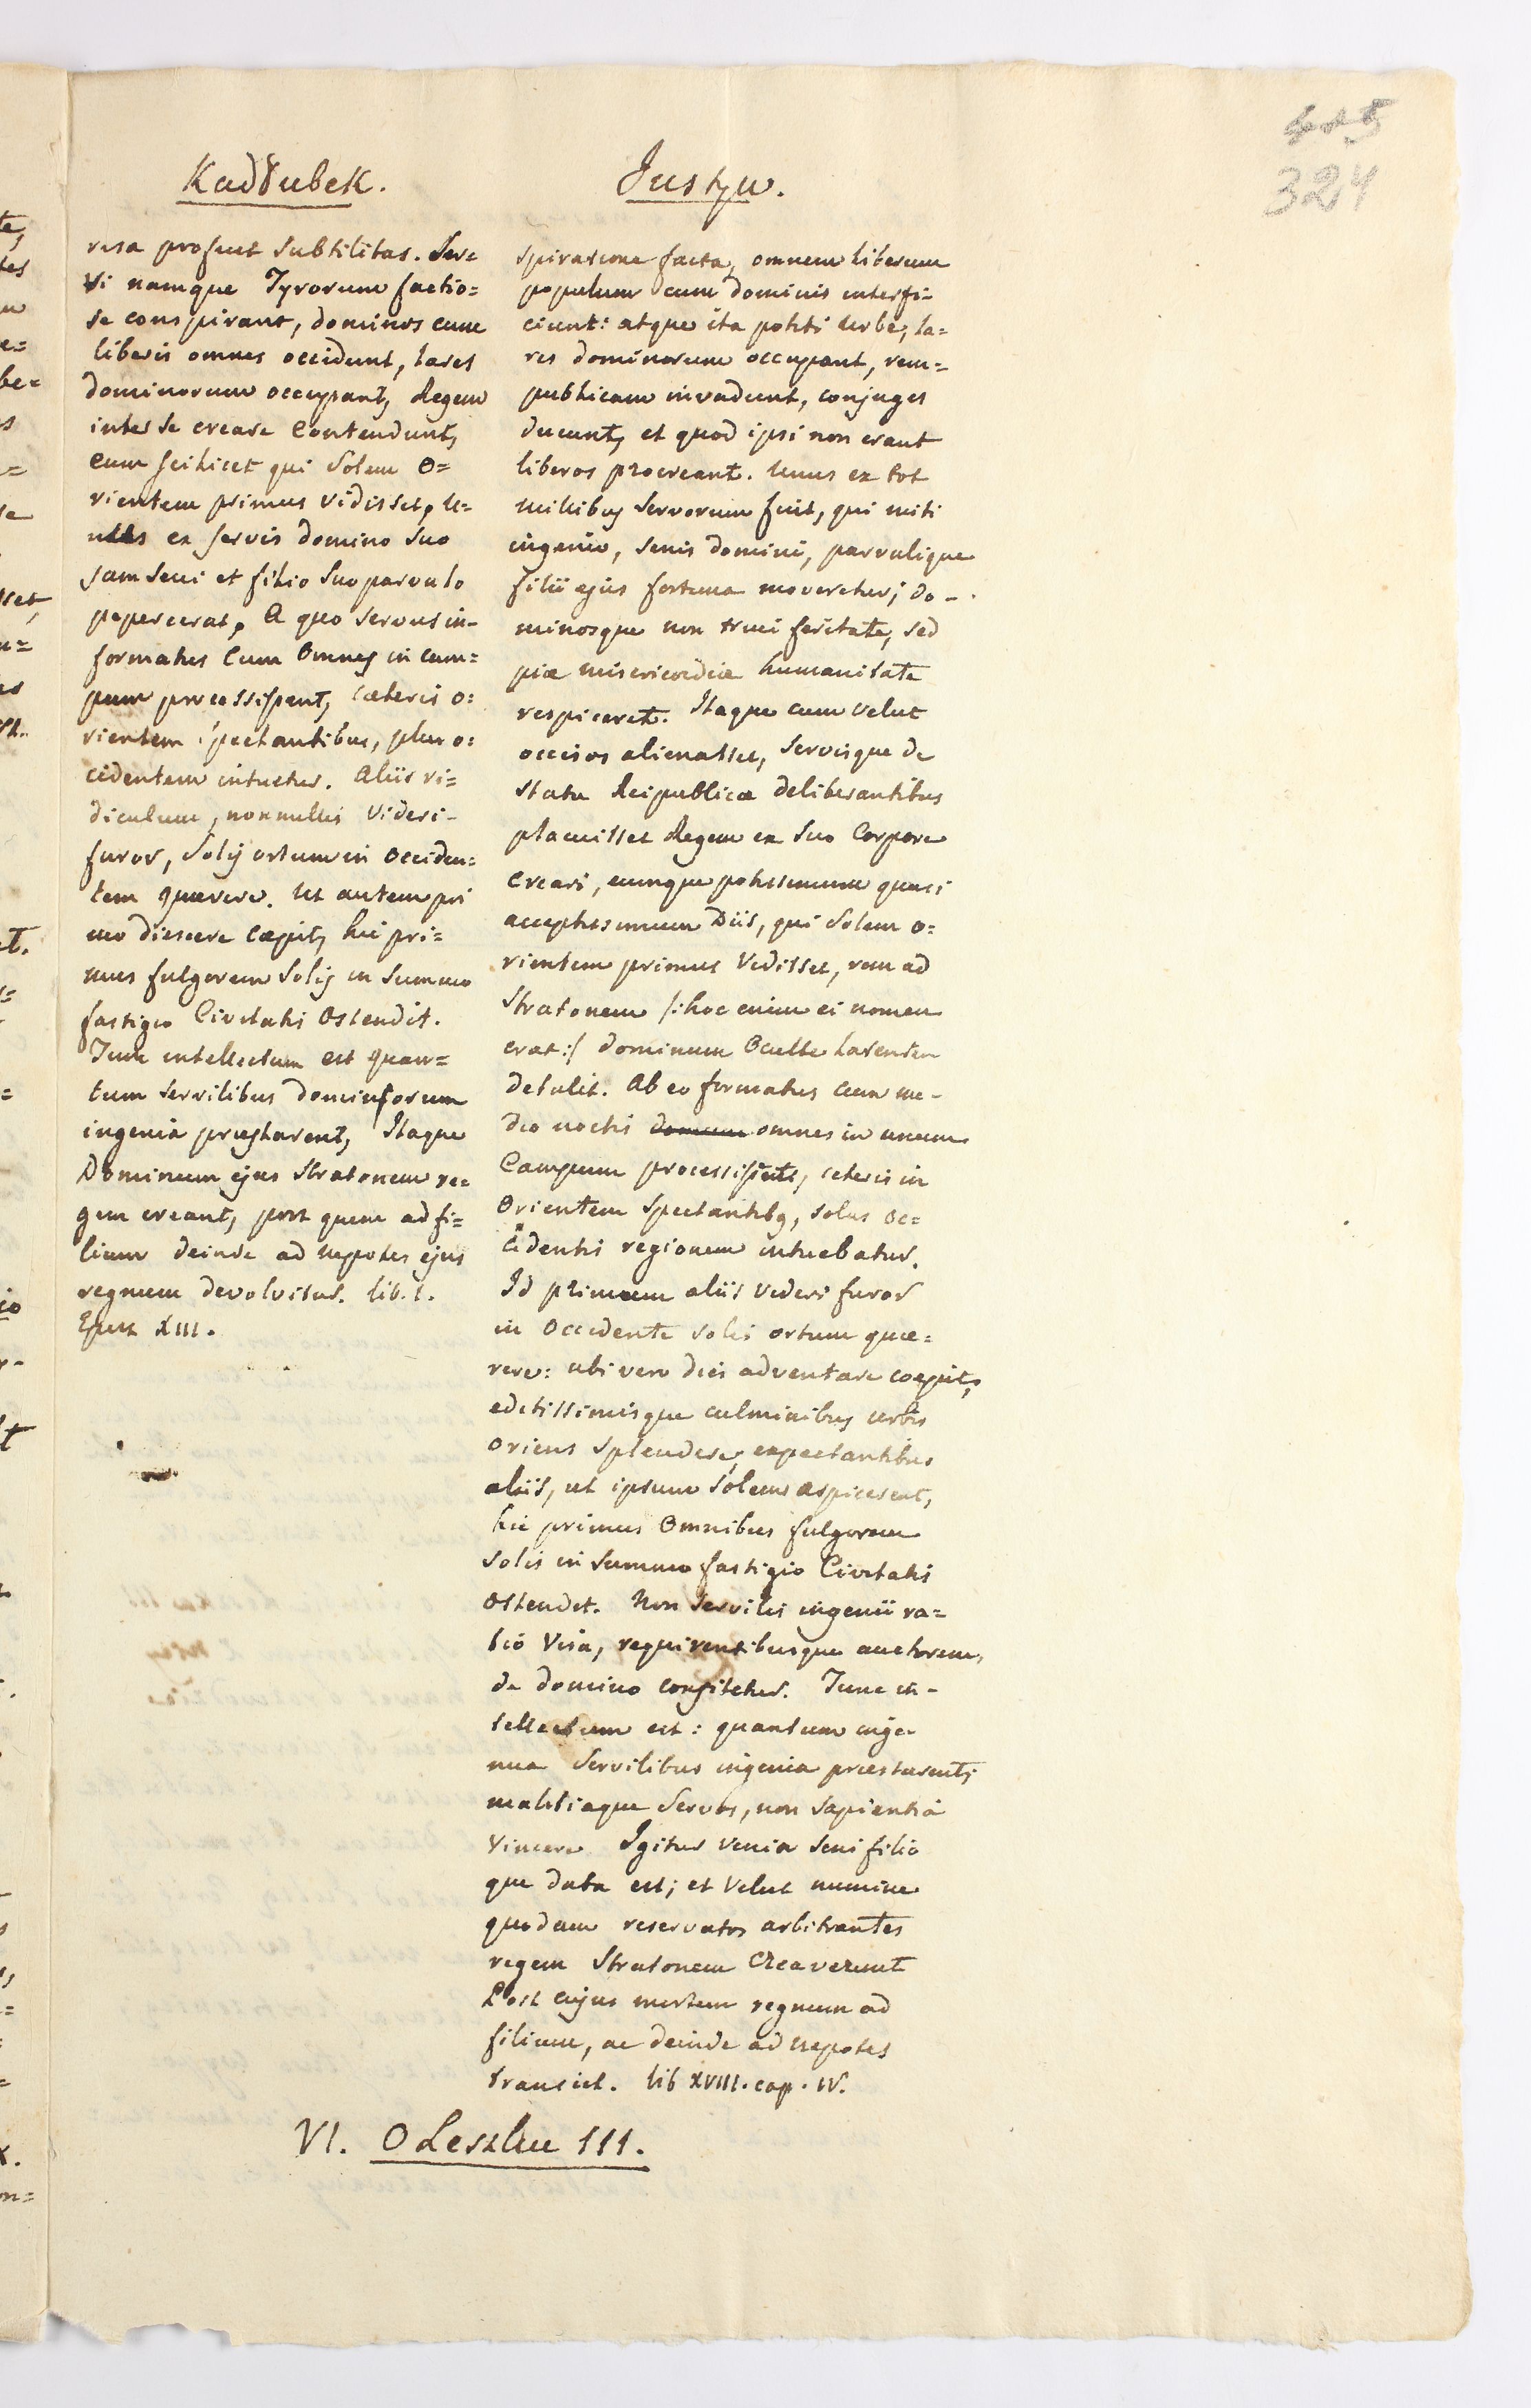 324
Kadłubek.
resa profuit Subtilitas. Ser=
vi namque Tyrorum factio=
se conspirant, dominos cum
liberis omnes occidunt, lares
dominorum occupant, Regem
inter se creare Contendunt,
eum scilicet qui Solem O=
rientem primus vidisset, u=
nus ex servis domino suo
jam seni et filio suo parvulo
pepercerat, a quo servus in-
formatus Cum Omnes in cam=
pum processissent, cæteris o=
rientem spectantibus,
cidentem intuetur. Aliis ri=
diculum, nonnullis Videri-
furor, Solis ortum in Occiden=
tem quærere. Ut autem pri
mo diescere cæpit, hic pri=
mus fulgorem Solis in Summo
fastigio Civitatis Ostendit.
Tunc intellectum est quan=
tum servilibus dominorum
ingenia præstarent, Itaque
Dominum ejus Stratonem re=
gem creant, post quem ad fi=
lium deinde ad nepotes ejus
regnum devolvitur. lib. I.
Epist XIII.
Justyn.
spiratione facta, omnem liberum
populum cum dominis interfi-
ciunt: atque ita potiti Urbe, la=
res dominorum occupant, rem=
publicam invadunt, conjuges
ducunt, et quod ipsi non erant
liberos procreant. Unus ex tot
millibus Servorum fuit, qui miti
ingenio, senis domini, parvulique
filii ejus fortuna moveretur; do-
minosque non truci feritate, sed
piæ misericordiæ humanitate
respiceret. Itaque cum velut
occisos alienasset, Servisque de
statu Reipublicæ deliberantibus
placuisset Regem ex Suo Corpore
Creari, eumque potissimum quasi
acceptissimum Diis, qui Solem o=
rientem primus Vidisset, rem ad
Stratonem /:hoc enim ei nomen
erat:/ dominum Occulte latentem
detulit. Ab eo formatus cum me-
dio noctis omnes in unum
Campum processissent, ceteris in
Orientem Spectantibq, solus oc=
cidentis regionem intuebatur.
Id primum aliis Videri furor
in Occidente solis ortum quæ=
rere: ubi vero dies adventare coepit,
editissimisque culminibus urbis
oriens Splendere, expectantibus
aliis, ut ipsum Solem aspicerent,
hic primus Omnibus fulgorem
Solis in Summo fastigio Civitatis
Ostendit. Non Servilis ingenii ra=
tio Visa, requirentibusque auctorem,
de domino confitetur. Tunc in-
tellectum est: quantum inge-
nua Servilibus ingenia præstarent,
malitiaque Servos, non Sapientia
Vincere Igitur Venia Seni filio
que data est; et Velut numine
quodam reservatos arbitrantes
regem Stratonem Creaverunt
Post cujus mortem regnum ad
filium, ac deinde ad nepotes
transiit. lib XVIII. cap. IV.
VI. O Leszku III.